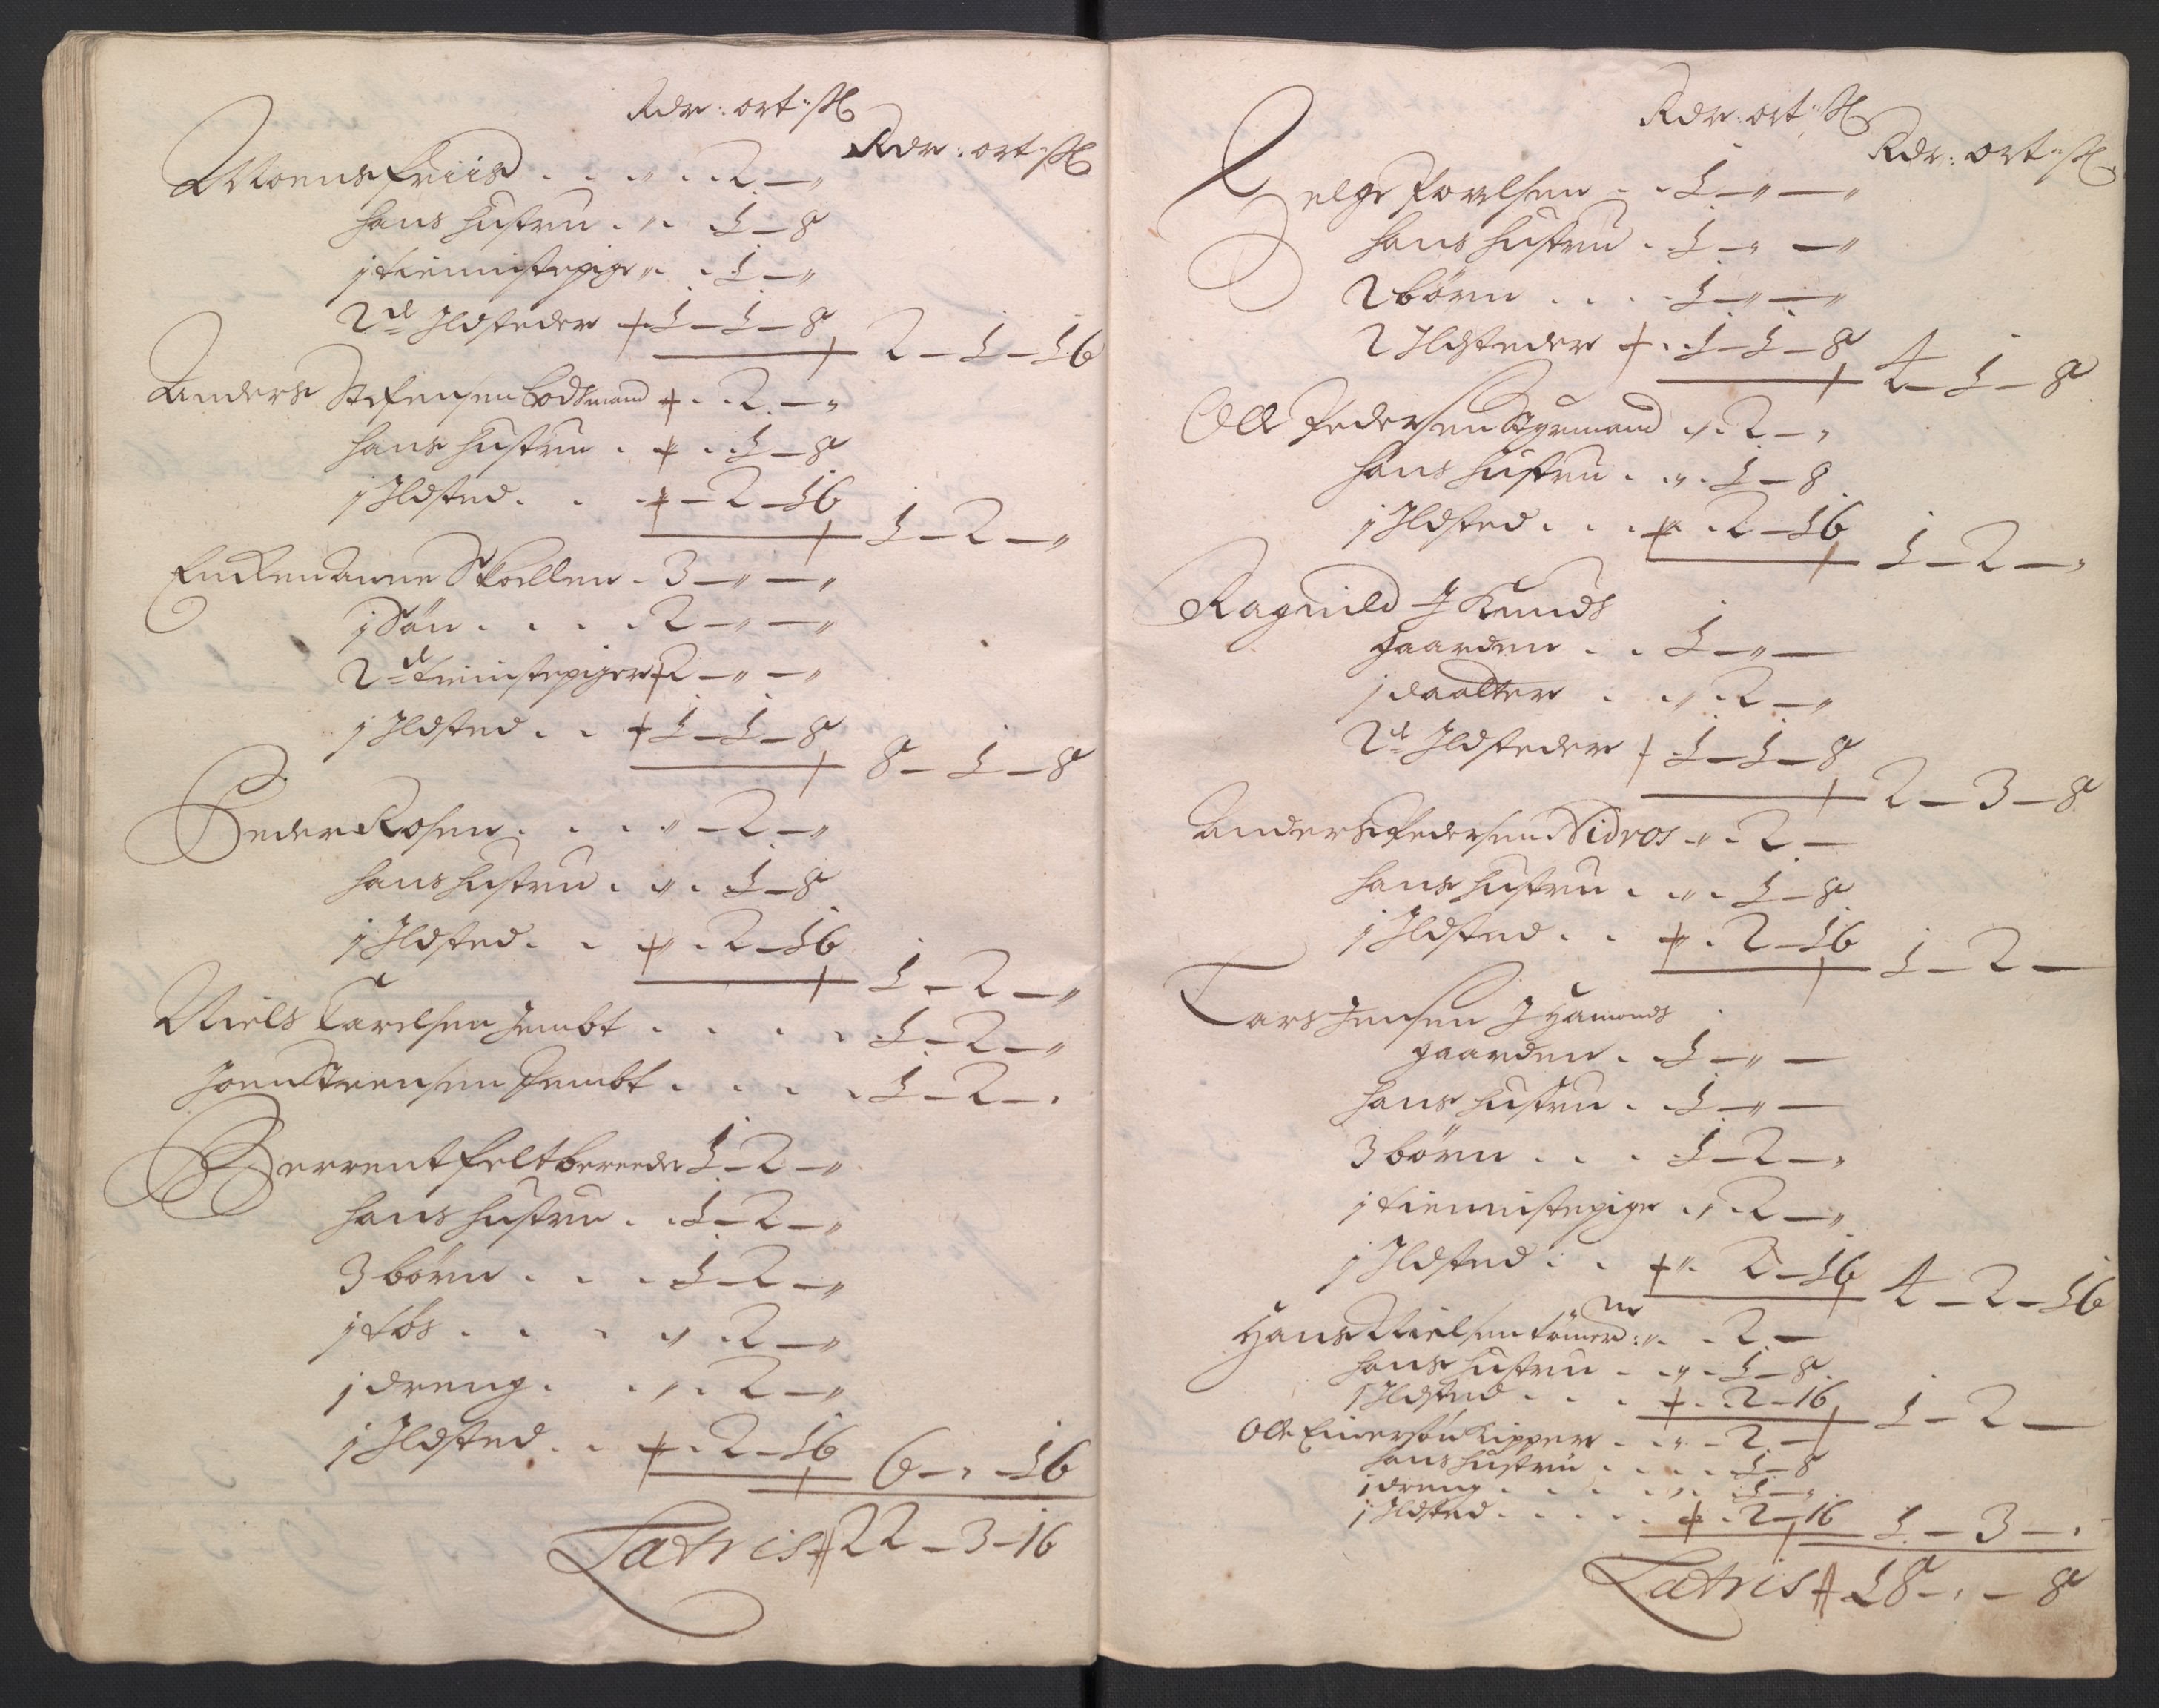 Rdr: ort: ß
Rdr: ort: ß
Moens Friis . . " . . 2 — "
hans hustru . " . 1 — 8
1 tiennistepige " . 1 — "
2de Ildsteder 1 — 1 — 8 2 — 1 — 16
Anders Stefensen bodsmand . . 2 — "
hans hustru . . 1 — 8
1 Ildsted . . — 2 — 16 1 — 2 — "
Enken Anne Skoellen . 3 — " — "
1 Søn . . . . 2 — " — "
2de tienistepiger 2 — " — "
1 Ildsted . . 1 — 1 — 8 8 — 1 — 8
Peder Rosen . . . " — 2 — "
hans hustru . " . 1 — 8
1 Ildsted . . " . 2 — 16 1 — 2 — "
Niels Carelsen Jembt . . . . 1 — 2 — "
Joen Steensen Jembt . . . . 1 — 2 — "
Berrent feltbereeder 1 — 2 — "
hans hustru . . 1 — 2 — "
3 børn . . . 1 — 2 — "
1 tøs . . . " . 2 — "
1 dreng . . " . 2 — "
1 Ildsted . . . 2 — 16 6 — " — 16
Latris 22 — 3 — 16
Rdr: ort: ß
Rdr: ort: ß
Helge Povelsen . . 1 — " — "
hans hustru . 1 — " — "
2 børn . . . . 1 — " — "
2 Ildsteder . 1 — 1 — 8 4 — 1 — 8
Olle Pedersen Styrmand " . 2 — "
hans hustru . " . 1 — 8
1 Ildsted . . . . 2 — 16 1 — 2 — "
Ragnild J Knuds
gaarden . . 1 — " —
1 daatter . . " . 2 — "
2de Ildsteder 1 — 1 — 8 2 — 3 — 8
Anders Pedersen Nidros " . 2 —
hans hustru . " . 1 — 8
1 Ildsted . . " . 2 — 16 1 — 2 —
Lars Jensen J Hamonds
gaarden . . 1 — " —
hans hustru . . 1 — " —
3 børn . . . 1 — 2 — "
1 tiennistepige . " . 2 — "
1 Ildsted . . " . 2 — 16 4 — 2 — 16
Hans Nielsen tømerm: " . 2 —
hans hustru . . " . 1 — 8
1 Ildsted . . . . 2 — 16 1 — 2 —
Olle Einersøn Kipper . . " — 2 —
hans hustru . . . . 1 — 8
1 dreng . . . . " . 1 — "
1 Ildsted . . . . . 2 — 16 1 — 3 — "
Latris 18 — " — 8